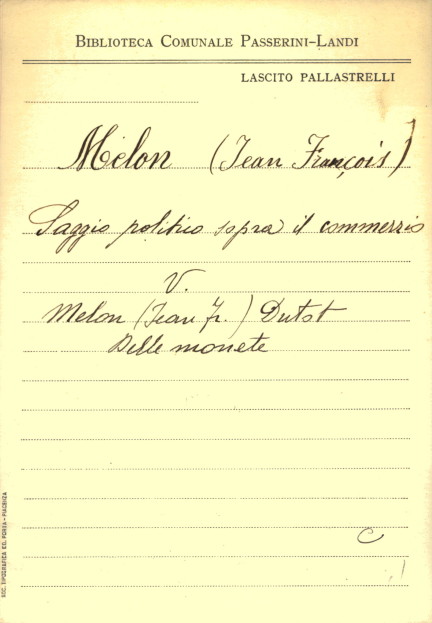 BIBLIOTECA COMUNALE PASSERINI-LANDI
LASCITO PALLASTRELLI
Melon (Jean François)
Saggio politico sopra il commercio
V.
Melon (Jean Fr.) Dutot
Delle monete
C
SOC. TIPOGRAFICA ED. PORTA - PIACENZA